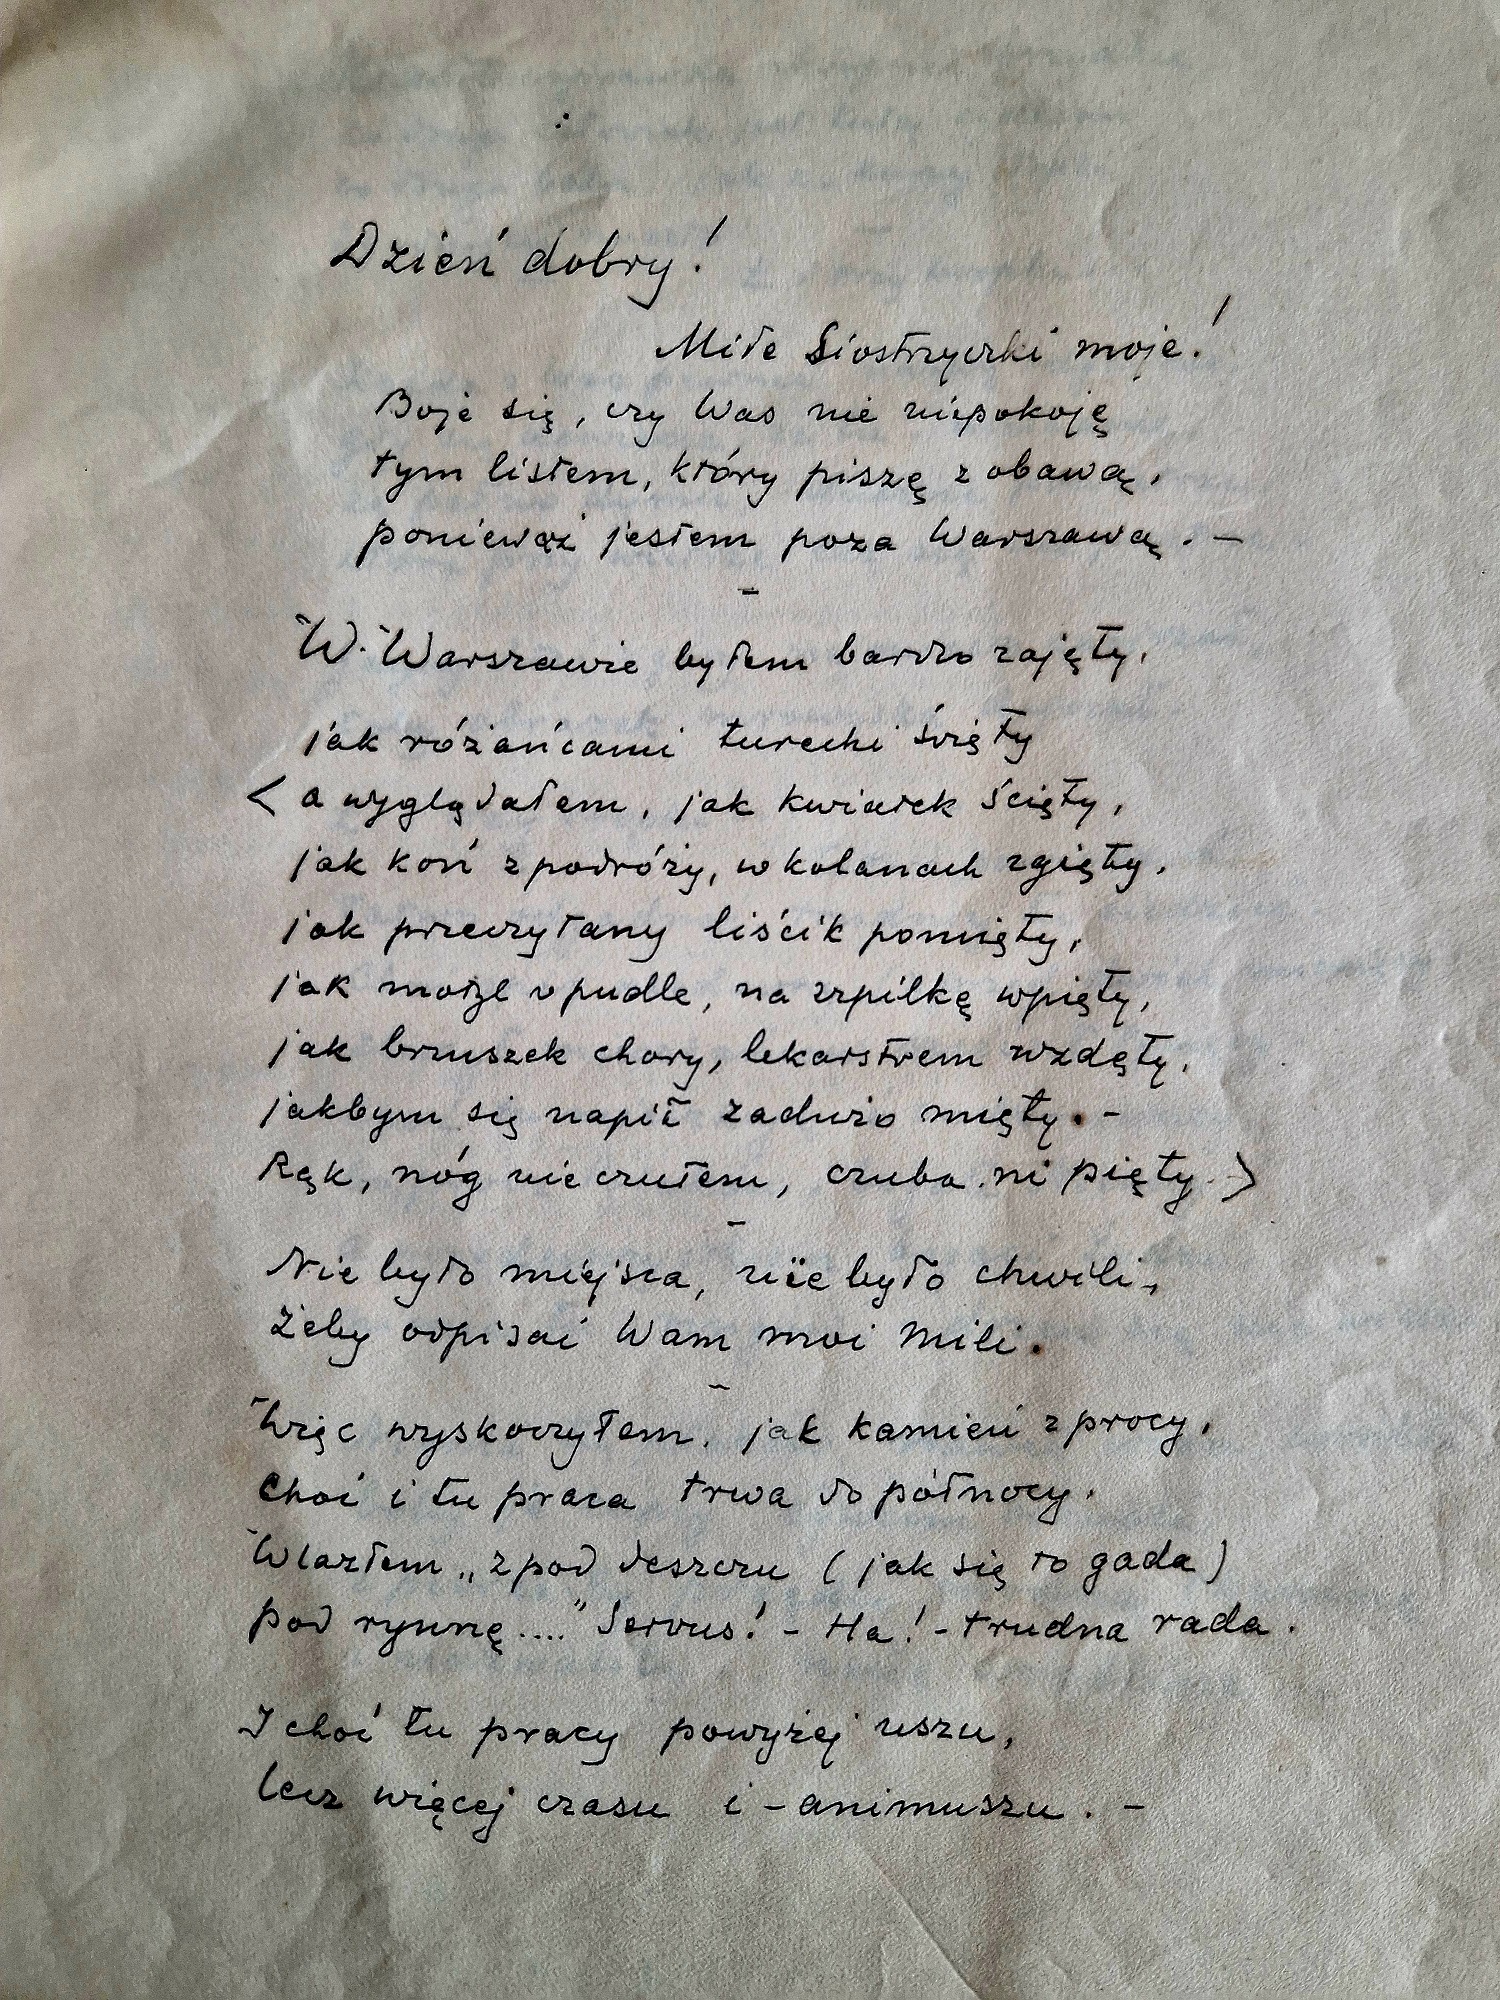 Dzień dobry!
Miłe Siostrzyczki moje!
Boję się, czy Was nie niepokoję
tym listem, który piszę z obawą,
ponieważ jestem poza Warszawą. –
–
W Warszawie byłem bardzo zajęty,
jak różańcami turecki święty
< a wyglądałem, jak kwiatek ścięty,
jak koń z podróży, w kolanach zgięty,
jak przeczytany liścik pomięty,
jak motyl w pudle, na szpilkę wpięty,
jak brzuszek chory, lekarstwem wzdęty,
jakbym się napił zadużo mięty. –
Rąk, nóg nie czułem, czuba ni pięty. >
–
Nie było miejsca, nie było chwili,
Żeby odpisać Wam moi Mili.
–
Więc wyskoczyłem, jak kamień z procy,
Choć i tu praca trwa do północy.
Wlazłem „z pod deszczu (jak się to gada)
pod rynnę...." Servus! – Ha! – trudna rada.
I choć tu pracy powyżej uszu,
lecz więcej czasu i – animuszu. –